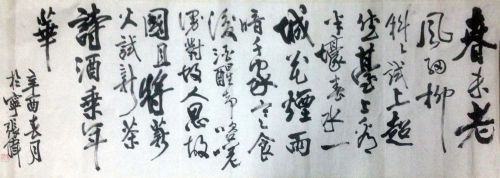 春未老
風細柳
斜々試上超
然臺上看
半壕春水一
城花煙雨
暗千家寒食
後酒醒卻咨嗟
休對故人思故
國且將新
火試新茶
詩酒乘年
華
春月
於寧張偉